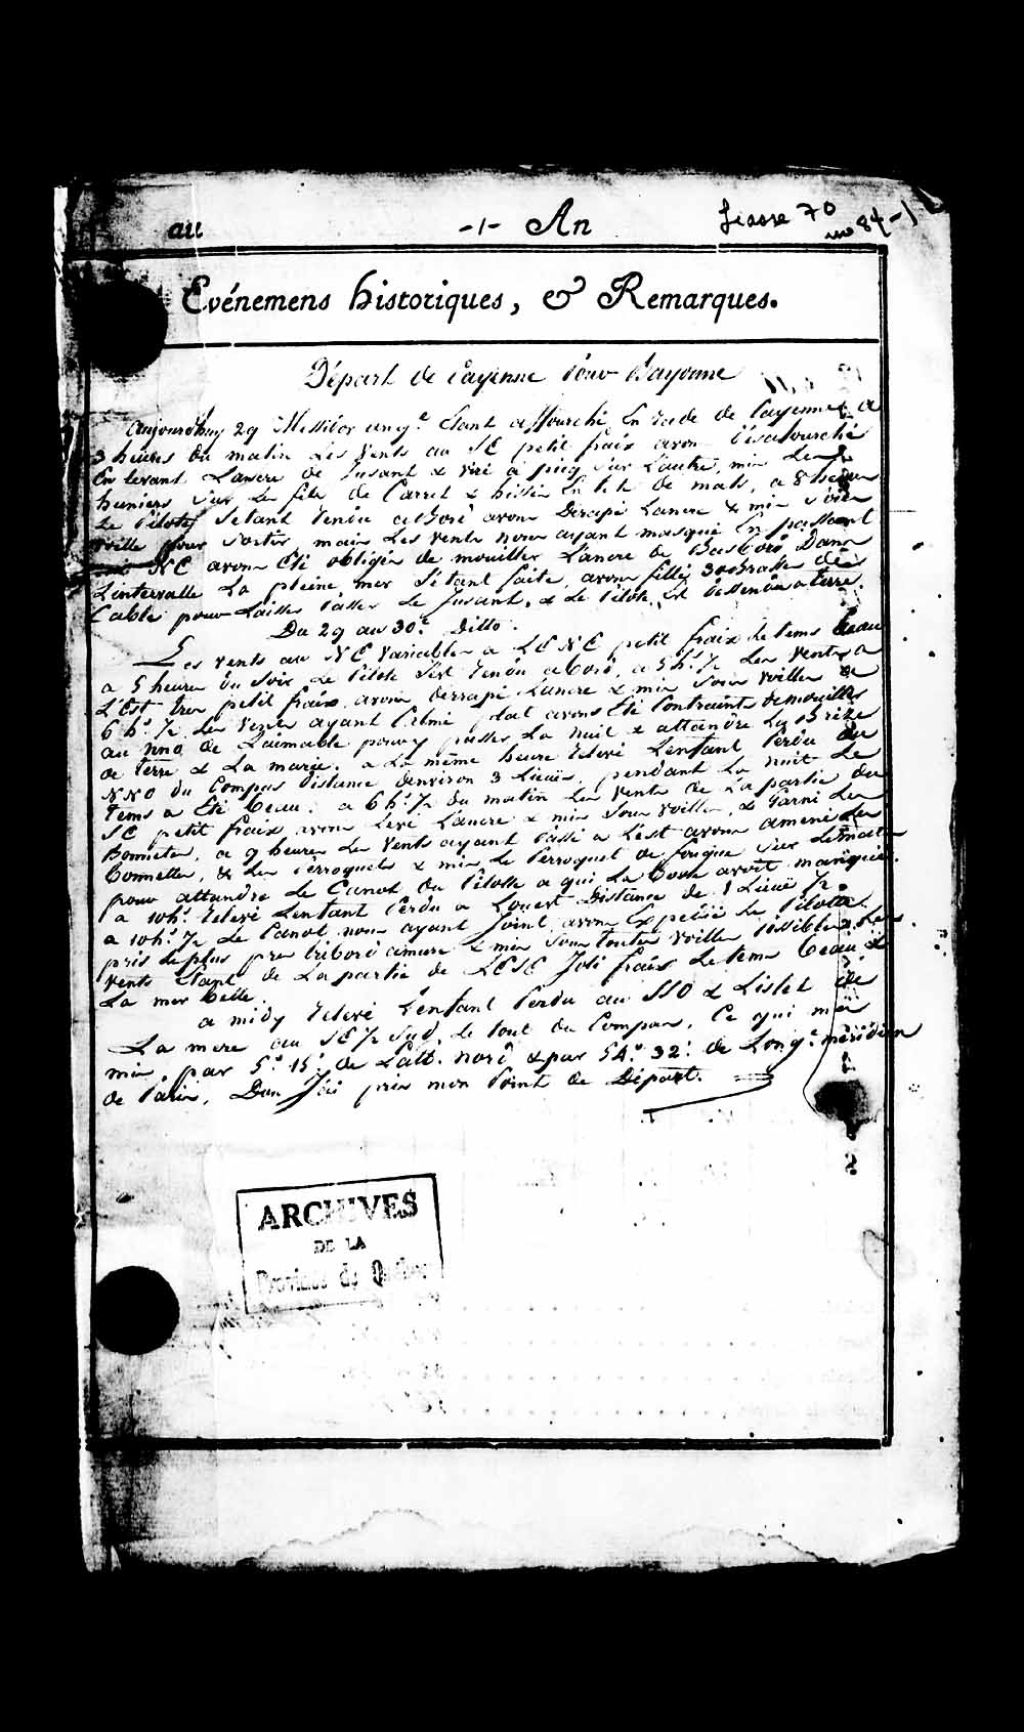 au -1- An Liasse 70
no 84-1
Evénemens historiques, & Remarques.
Départ de Cayenne pour Bayonne
Aujourd'huy 29 Messidor an 9.e Etant affourché En rade de Cayenne a
3 heures du matin Les Vents au SE petit fraix avons Désafourché
En levant Lancre de Jusant & viré a piq sur Lautre, mis Les
huniers sur Les fils de Carret & hissés En tete de mats, a 8 heures
Le Pilote Setant rendu abord avons Derapé Lancre & mis sous
voille pour sortir, mais Les vents nous ayant masqué En passant
au NE avons Eté obligés de mouiller Lancre de Basbord, Dans
Lintervalle La pleine mer S'étant faite, avons fillés 30 Brasses de
Cable pour Laisser passer Le Jusant, & Le Pilote Est dessendu a terre.
Du 29 au 30.e Ditto.
Les vents au NE Variables a LENE petit fraix Le tems Beau
a 5 heures du Soir Le Pilote S'est rendu abord, a 5h.s 1/2 Les Vents a
L'Est tres petit fraix, avons derrapé Lancre & mis sous voilles a
6h.s 1/2 Les Vents ayant Calmé plat avons Eté Contraints de mouiller
au nno de Laimable pour y passer La nuit & attendre La Brize
de terre & La marée. a La même heure relevé Lenfant Perdu au
NNO du Compas distance denviron 3 Lieües, pendant La nuit Le
tems a Eté beau. a 6h.s 1/2 du matin Les Vents de La partie du
SE petit fraix, avons Levé Lancre & mis sous voilles, & Garni Les
Bonnetes, a 9 heures Les Vents ayant passé a L'est avons amené Les
bonnettes, & Les Perroquets & mis Le Perroquet de fougue sur Le mat
pour attendre Le Canot du Pilotte a qui La Bosse avoit manquée.
a 10h.s relevé Lenfant Perdu a Louest Distance de 1 Lieüe 1/2.
a 10h.s 1/2 Le Canot nous ayant Joint avons Expedié Le Pilotte
pris Le plus pres tribord amure & mis sous toutes voilles possibles, Les
vents Etant de La partie de LESE Joli fraix Le tems beau &
La mer belle.
a midy relevé Lenfant Perdu au SSO & Lislet de
La mere au SE 1/2 Sud, Le tout du Compas, Ce qui m'a
mis, par 5.° 15.' de Latt. nord & par 54.° 32.' de Long.e méridien
de Paris, Dou J'ai pris mon Point de Départ.
ARCHIVES
DE LA
Province de Québec